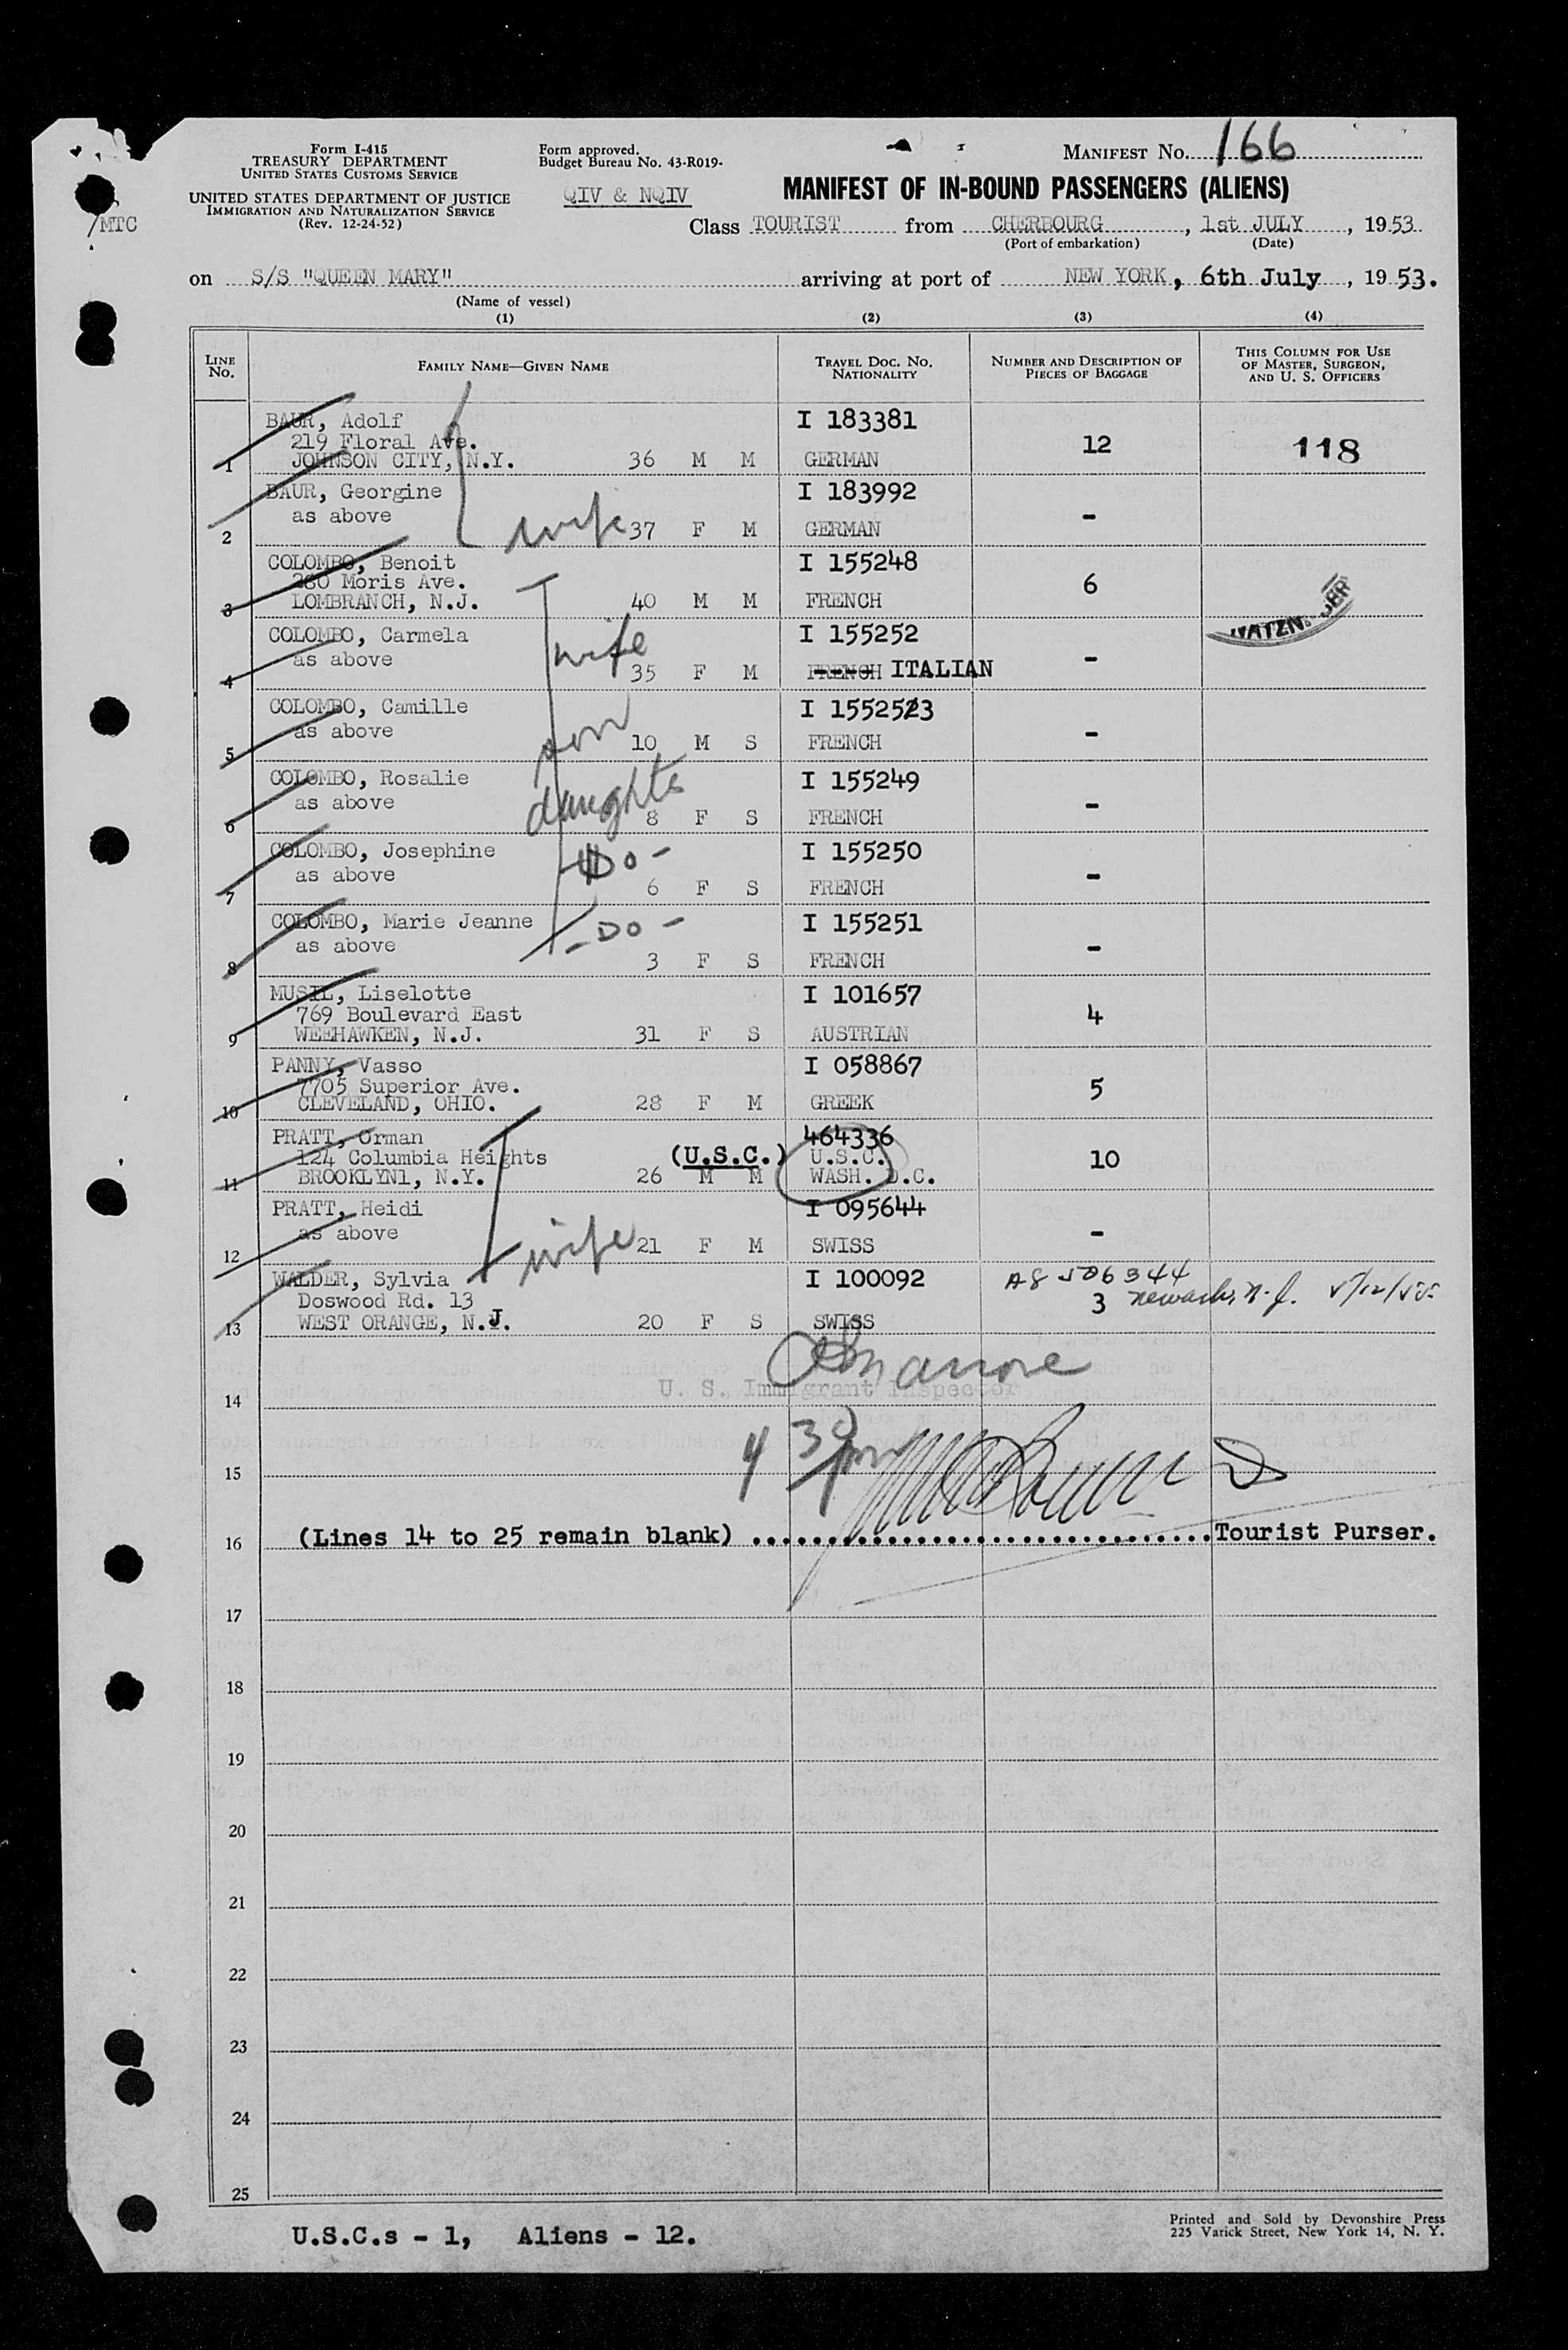 Form I-415
TREASURY DEPARTMENT
UNITED STATES CUSTOMS SERVICE
UNITED STATES DEPARTMENT OF JUSTICE
IMMIGRATION AND NATURALIZATION SERVICE
(Rev. 12-24-52)
/MTC
Form approved.
Budget Bureau No. 43-R019-
QIV & NQIV
MANIFEST No. 166
MANIFEST OF IN-BOUND PASSENGERS (ALIENS)
Class TOURIST from CHERBOURG, 1st JULY, 1953
(Port of embarkation) (Date)
on S/S "QUEEN MARY" arriving at port of NEW YORK, 6th July, 1953.
(Name of vessel)
(1) (2) (3) (4)
LINE No. FAMILY NAME—GIVEN NAME TRAVEL DOC. NO. NATIONALITY NUMBER AND DESCRIPTION OF PIECES OF BAGGAGE THIS COLUMN FOR USE OF MASTER, SURGEON, AND U. S. OFFICERS
BAUR, Adolf I 183381
219 Floral Ave. 12 118
1 JOHNSON CITY, N.Y. 36 M M GERMAN
BAUR, Georgine I 183992
as above -
2 wife 37 F M GERMAN
COLOMBO, Benoit I 155248
280 Moris Ave. 6
3 LOMBRANCH, N.J. 40 M M FRENCH
COLOMBO, Carmela I 155252
as above wife -
4 35 F M FRENCH ITALIAN
COLOMBO, Camille I 1552523
as above son -
5 10 M S FRENCH
COLOMBO, Rosalie I 155249
as above daughter -
6 8 F S FRENCH
COLOMBO, Josephine I 155250
as above -DO- -
7 6 F S FRENCH
COLOMBO, Marie Jeanne I 155251
as above -DO- -
8 3 F S FRENCH
MUSIL, Liselotte I 101657
769 Boulevard East 4
9 WEEHAWKEN, N.J. 31 F S AUSTRIAN
PANNY, Vasso I 058867
7705 Superior Ave. 5
10 CLEVELAND, OHIO. 28 F M GREEK
PRATT, Orman 464336
124 Columbia Heights (U.S.C.) U.S.C. 10
11 BROOKLYN1, N.Y. 26 M M WASH. D.C.
PRATT, Heidi I 095644
as above -
12 wife 21 F M SWISS
WALDER, Sylvia I 100092 A8 506344
Doswood Rd. 13 3 Newark, N.J. 5/12/55
13 WEST ORANGE, N.J. 20 F S SWISS
U. S. Immigrant Inspector
14
4 30 pm
15
16 (Lines 14 to 25 remain blank) ..............................Tourist Purser.
17
18
19
20
21
22
23
24
25
U.S.C.s - 1, Aliens - 12.
Printed and Sold by Devonshire Press
225 Varick Street, New York 14, N. Y.